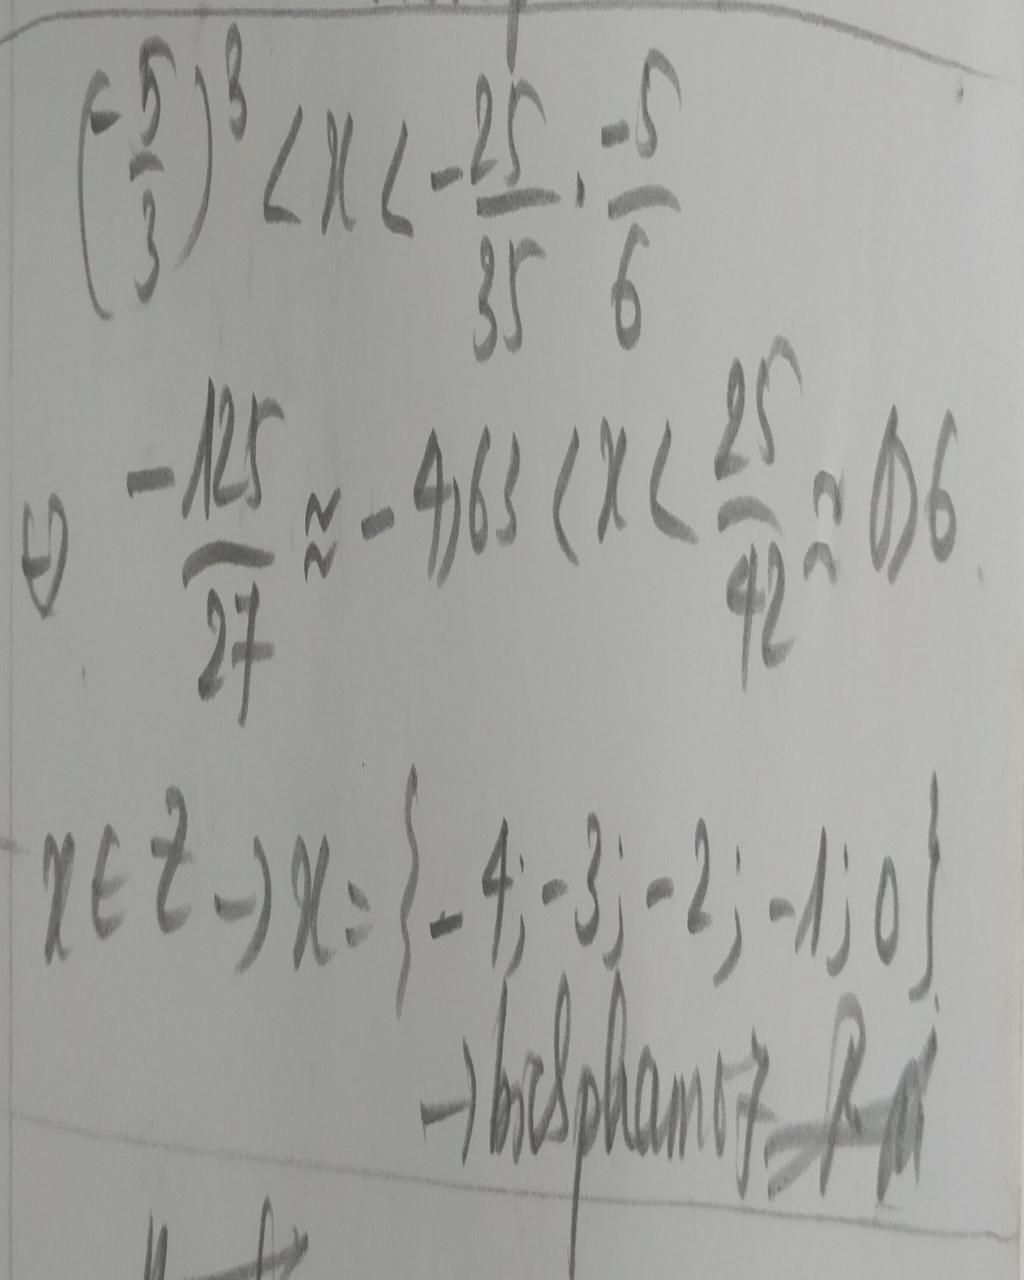 (-5/3)^3 < x < -25/35 . -5/6
⇔ -125/27 ≈ -4,63 < x < 25/42 ≈ 0,6
x ∈ Z → x = {-4; -3; -2; -1; 0}